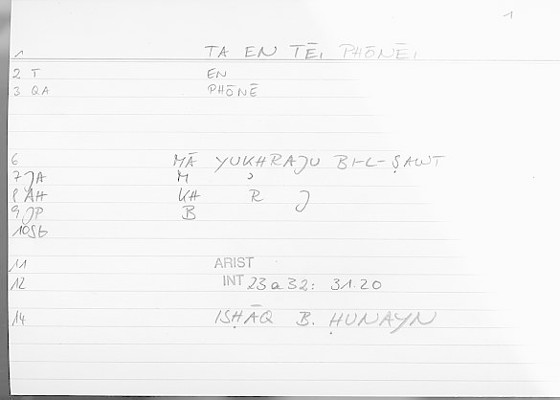 1
1 TA EN TĒI PHŌNĒI
2 T EN
3 QA PHŌNĒ
6 MĀ YUKHRAJU BI-L-ṢAWT
7 JA M ʾ
8 AH KH R J
9 JP B
10 Sb
11 ARIST
12 INT 23a32: 31.20
14 ISḤĀQ B. ḤUNAYN